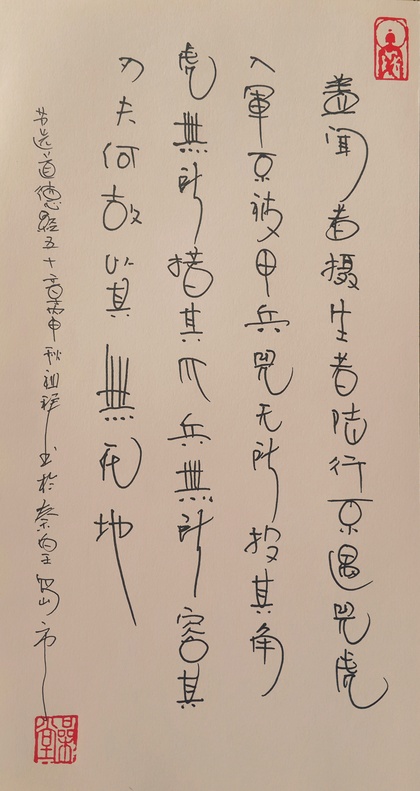 蓋闻善摄生者陆行不遇兕虎
入軍不被甲兵兕无所投其角
虎無所措其爪兵無所容其
刃夫何故以其無死地
节选道德经五十章丙申秋祖书於秦皇岛市